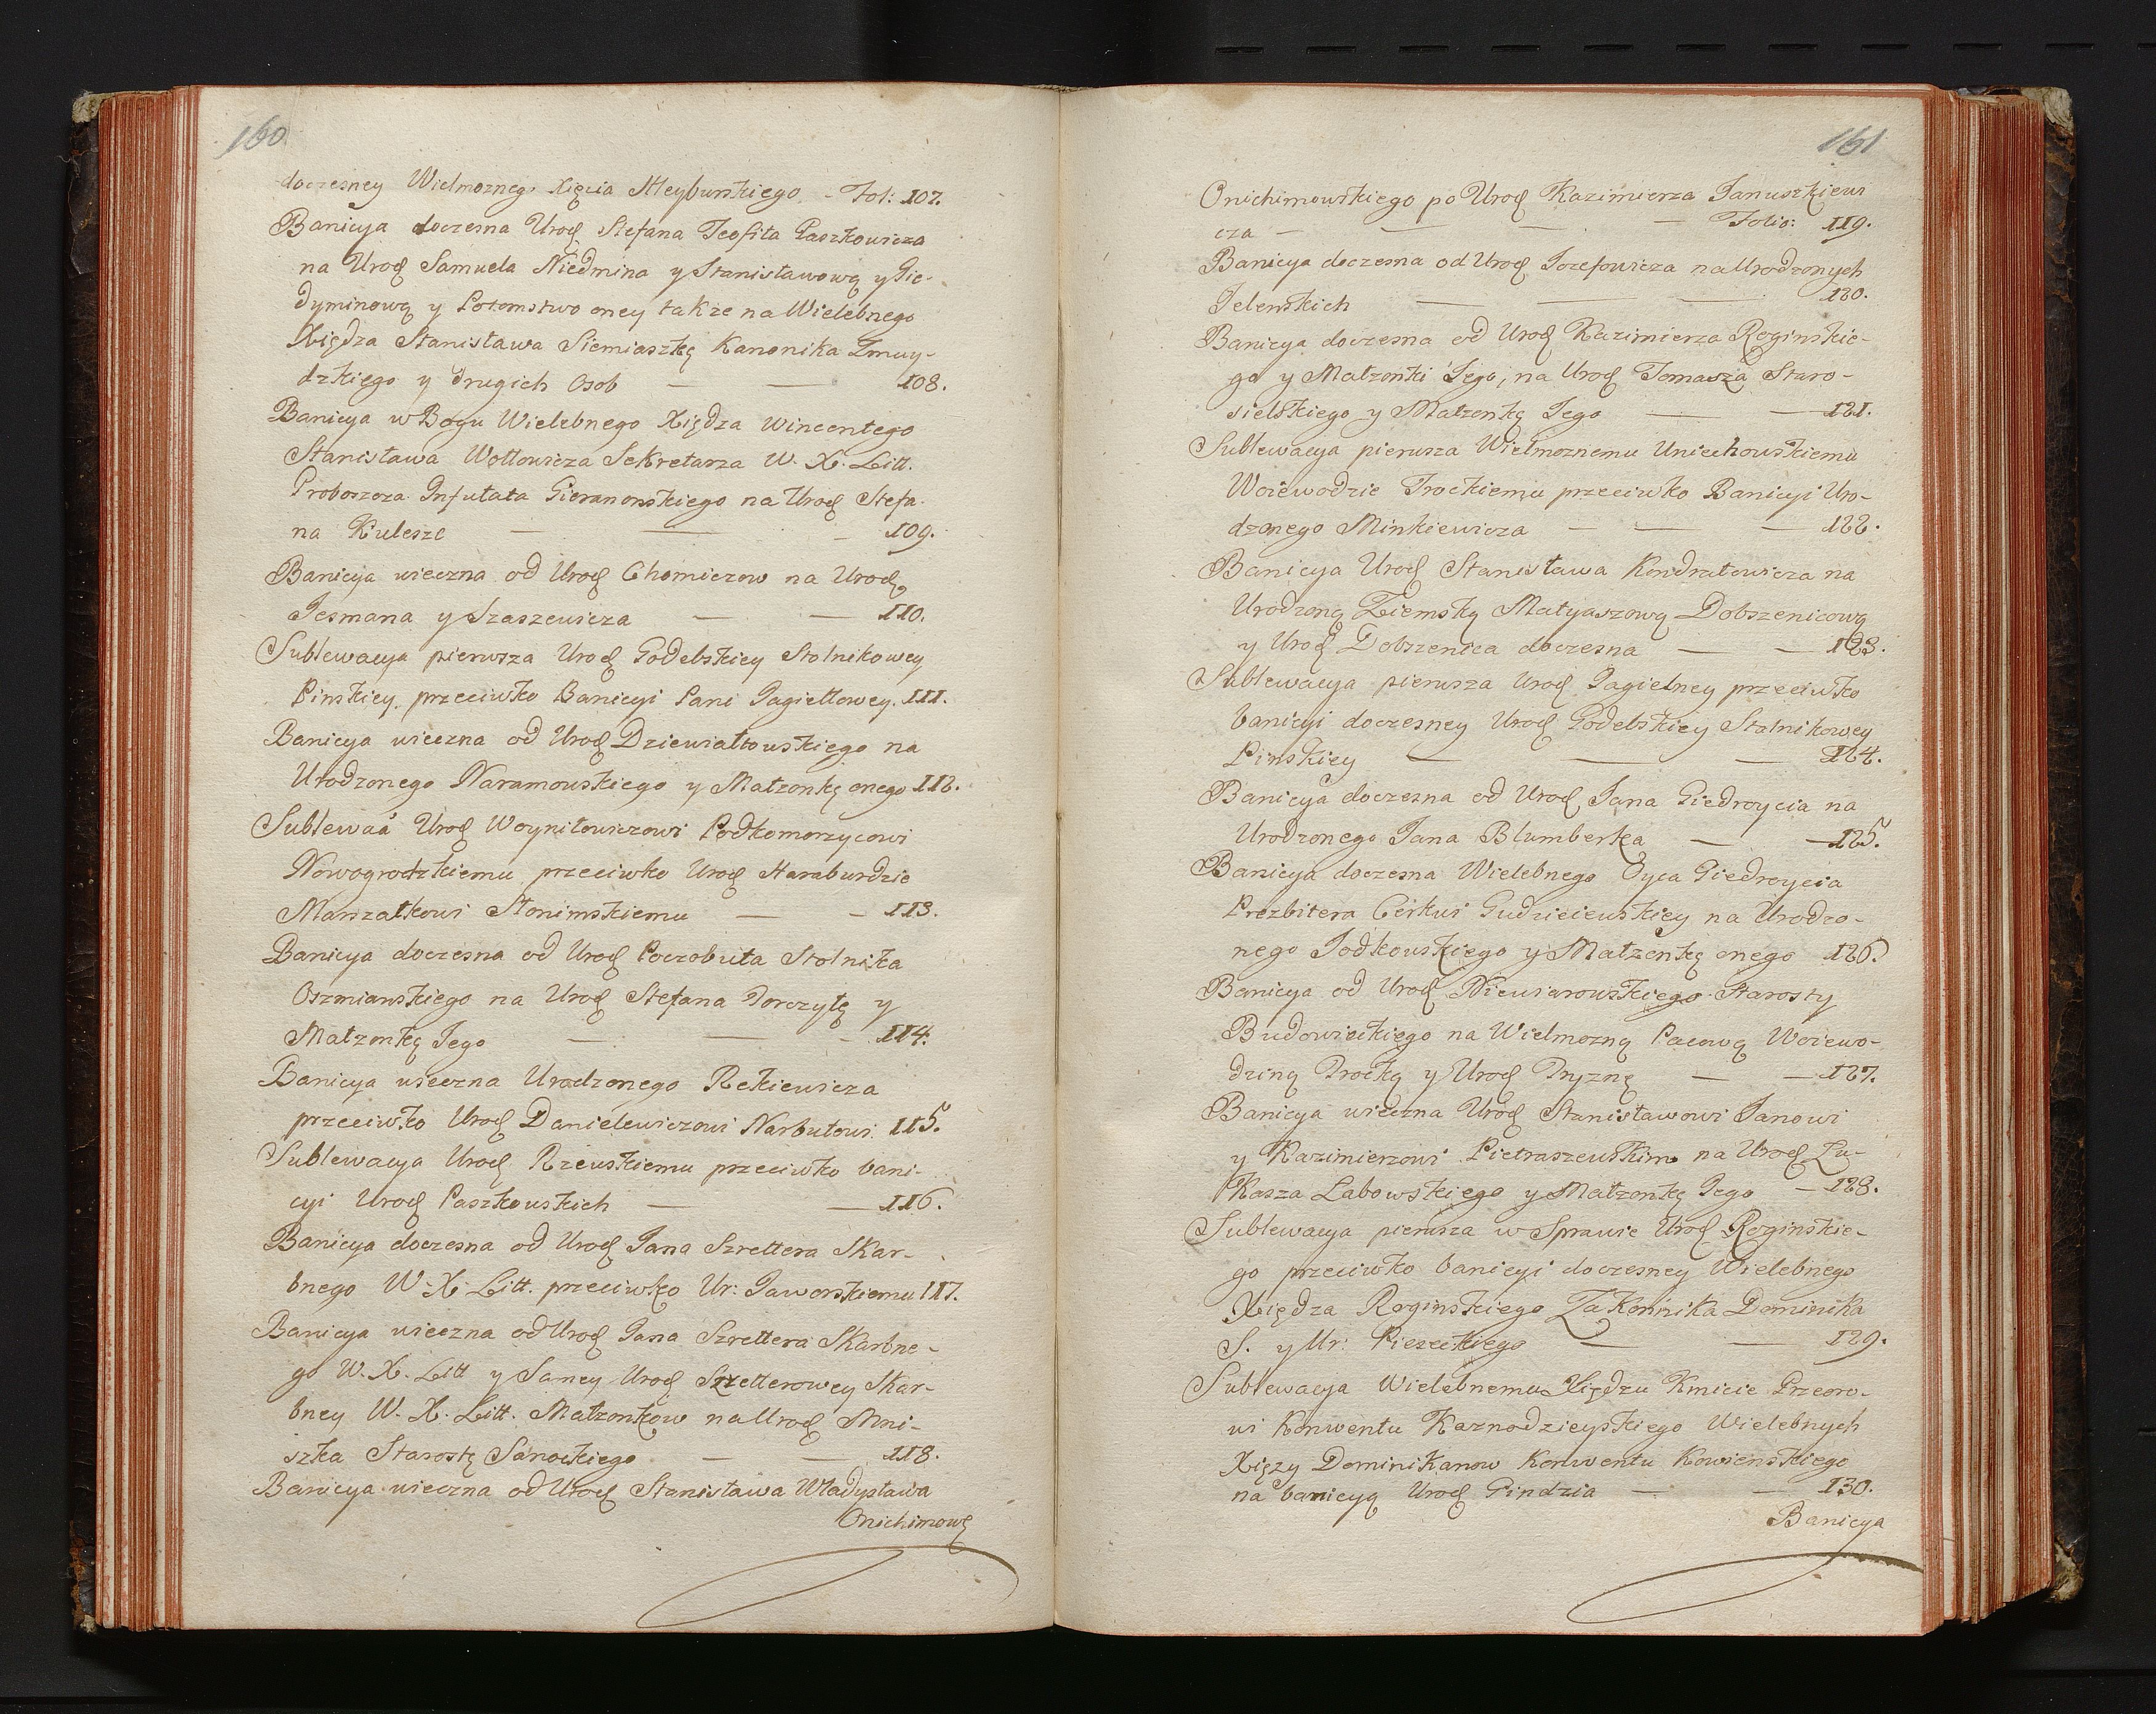 160.
doczesney Wielmoznego Xięcia Meyburskiego. - Fol: 107.
Banicya doczesna Urod Stefana Teofila Paszkowicza
na Urod Samuela Niedmina y Stanisławową y Gie-
dyminową y Potomstwo oney takze na Wielebnego
Xiędza Stanisława Siemiaszkę Kanonika Zmuy-
dzkiego y drugich Osob — — 108.
Banicya w Bogu Wielebnego Xiędza Wincentego
Stanisława Wołłowicza Sekretarza W. X. Litt.
Proboszcza Infułata Gieranonskiego na Urod Stefa-
na Kulesze — — - 109.
Banicya wieczna od Urod Chomiczow na Urod
Jesmana y Szaszewicza — — 110.
Sublewacya pierwsza Urod Godebskiey Stolnikowey
Pinskiey przeciwko Banicyi Pani Jagiełłowey. 111.
Banicya wieczna od Urod Dziewiałtowskiego na
Urodzonego Naramowskiego y Małzonkę onego 112.
Sublewaa Urod Woyniłowiczowi Podkomorzycowi
Nowogrodzkiemu przeciwko Urod Haraburdzie
Marszałkowi Słonimskiemu — - 113.
Banicya doczesna od Urod Poczobuta Stolnika
Oszmianskiego na Urod Stefana Dorczyłę y
Małzonkę Jego — — - 114.
Banicya wieczna Uradzonego Rekiewicza
przeciwko Urod Danielewiczowi Narbutowi. 115.
Sublewacya Urod Rzewskiemu przeciwko bani-
cyi Urod Paszkowskich — — 116.
Banicya doczesna od Urod Jana Szrettera Skar-
bnego W. X. Litt. przeciwko Ur: Jaworskiemu 117.
Banicya wieczna od Urod Jana Szrettera Skarbne-
go W. X. Litt y Samey Urod Szretterowey Skar-
bney W. X. Litt. Małzonkow na Urod Mni-
szka Starostę Sanockiego — — 118.
Banicya wieczna od Urod Stanisława Władysława
Onichimows
161
Onichimowskiego po Urod Kazimierza Januszkiewi
cza — — — — Folio: 119.
Banicya doczesna od Urod Jozefowicza na Urodzonych
Jelenskich — — — 120.
Banicya doczesna od Urod Kazimierza Roginskie-
go y Małzonki Jego, na Urod Tomasza Staro-
sielskiego y Małzonkę Jego — — 121.
Sublewacya pierwsza Wielmoznemu Uniechowskiemu
Woiewodzie Trockiemu przeciwko Banicyi Uro-
dzonego Minkiewicza — — — 122.
Banicya Urod Stanisława Kondratowicza na
Urodzoną Ziemską Matyaszową Dobszenicową
y Urod Dobszenica doczesna — — 123.
Sublewacya pierwsza Urod Jagielney przeciwko
banicyi doczesney Urod Godebskiey Stolnikowey
Pinskiey — — — 124.
Banicya doczesna od Urod Jana Giedroycia na
Urodzonego Jana Blumberka — — 125.
Banicya doczesna Wielebnego Oyca Giedroycia
Prezbitera Cerkwi Gudzieiewskiey na Urodzo-
nego Jodkowskiego y Małzonkę onego 126.
Banicya od Urod Niewiarowskiego Starosty
Budowieckiego na Wielmozną Pacową Woiewo-
dziną Trocką y Urod Pryznę — — 127.
Banicya wieczna Urod Stanisławowi Janowi
y Kazimierzowi Pietraszewskim na Urod Łu-
kasza Labowskiego y Małzonkę Jego — 128.
Sublewacya pierwsza w Sprawie Urod Roginskie-
go przeciwko banicyi doczesney Wielebnego
Xiędza Roginskiego Zakonnika Dominika
S. y Ur: Pieseckiego — — 129.
Sublewacya Wielebnemu Xiędzu Kmicie Przeoro-
wi Konwentu Kaznodzieyskiego Wielebnych
Xięzy Dominikanow Konwentu Kowienskiego
na banicyą Urod Gindzia — — 130.
Banicya